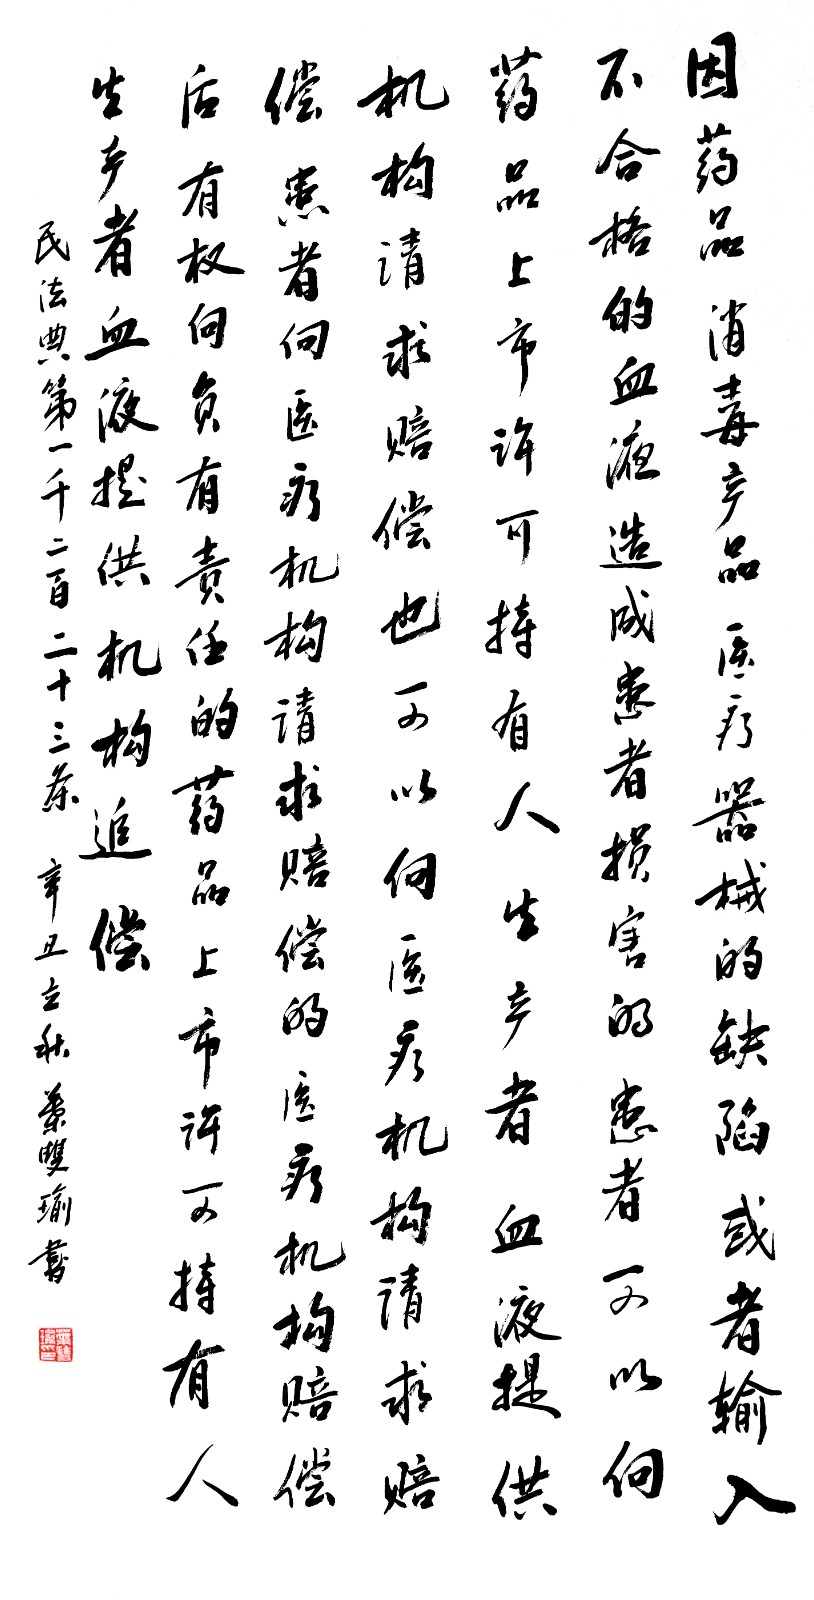 因药品消毒产品医疗器械的缺陷或者输入
不合格的血液造成患者损害的患者可以向
药品上市许可持有人生产者血液提供
机构请求赔偿也可以向医疗机构请求赔
偿患者向医疗机构请求赔偿的医疗机构赔偿
后有权向负有责任的药品上市许可持有人
生产者血液提供机构追偿
民法典第一千二百二十三条 辛丑立秋 叶双瑜书